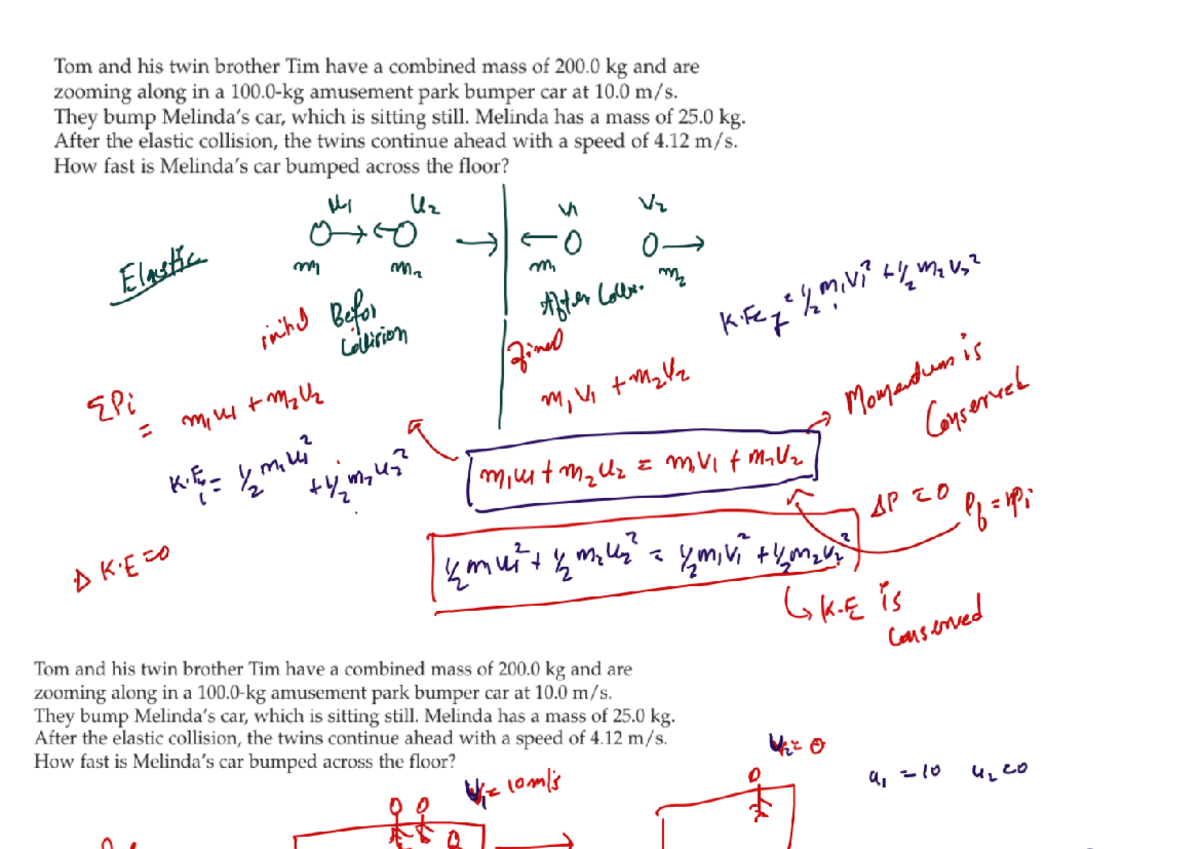 Tom and his twin brother Tim have a combined mass of 200.0 kg and are
zooming along in a 100.0-kg amusement park bumper car at 10.0 m/s.
They bump Melinda's car, which is sitting still. Melinda has a mass of 25.0 kg.
After the elastic collision, the twins continue ahead with a speed of 4.12 m/s.
How fast is Melinda's car bumped across the floor?
u₁ u₂ v₁ v₂
Elastic
m₁ m₂ m₁ m₂
Befor
Collision
After
K.E f = ½ m₁v₁² + ½ m₂v₂²
ΣPi = m₁u₁ + m₂u₂
m₁v₁ + m₂v₂
Momendum is
Conserved
K.E i = ½ m₁u₁² + ½ m₂u₂²
m₁u₁ + m₂u₂ = m₁v₁ + m₂v₂
ΔP = 0
ΔK.E = 0
½ m u₁² + ½ m₂u₂² = ½ m₁v₁² + ½ m₂v₂²
K.E is
Conserved
Tom and his twin brother Tim have a combined mass of 200.0 kg and are
zooming along in a 100.0-kg amusement park bumper car at 10.0 m/s.
They bump Melinda's car, which is sitting still. Melinda has a mass of 25.0 kg.
After the elastic collision, the twins continue ahead with a speed of 4.12 m/s.
How fast is Melinda's car bumped across the floor?
u₂ = 0
u₁ = 10 u₂ = 0
u₁ = 10m/s